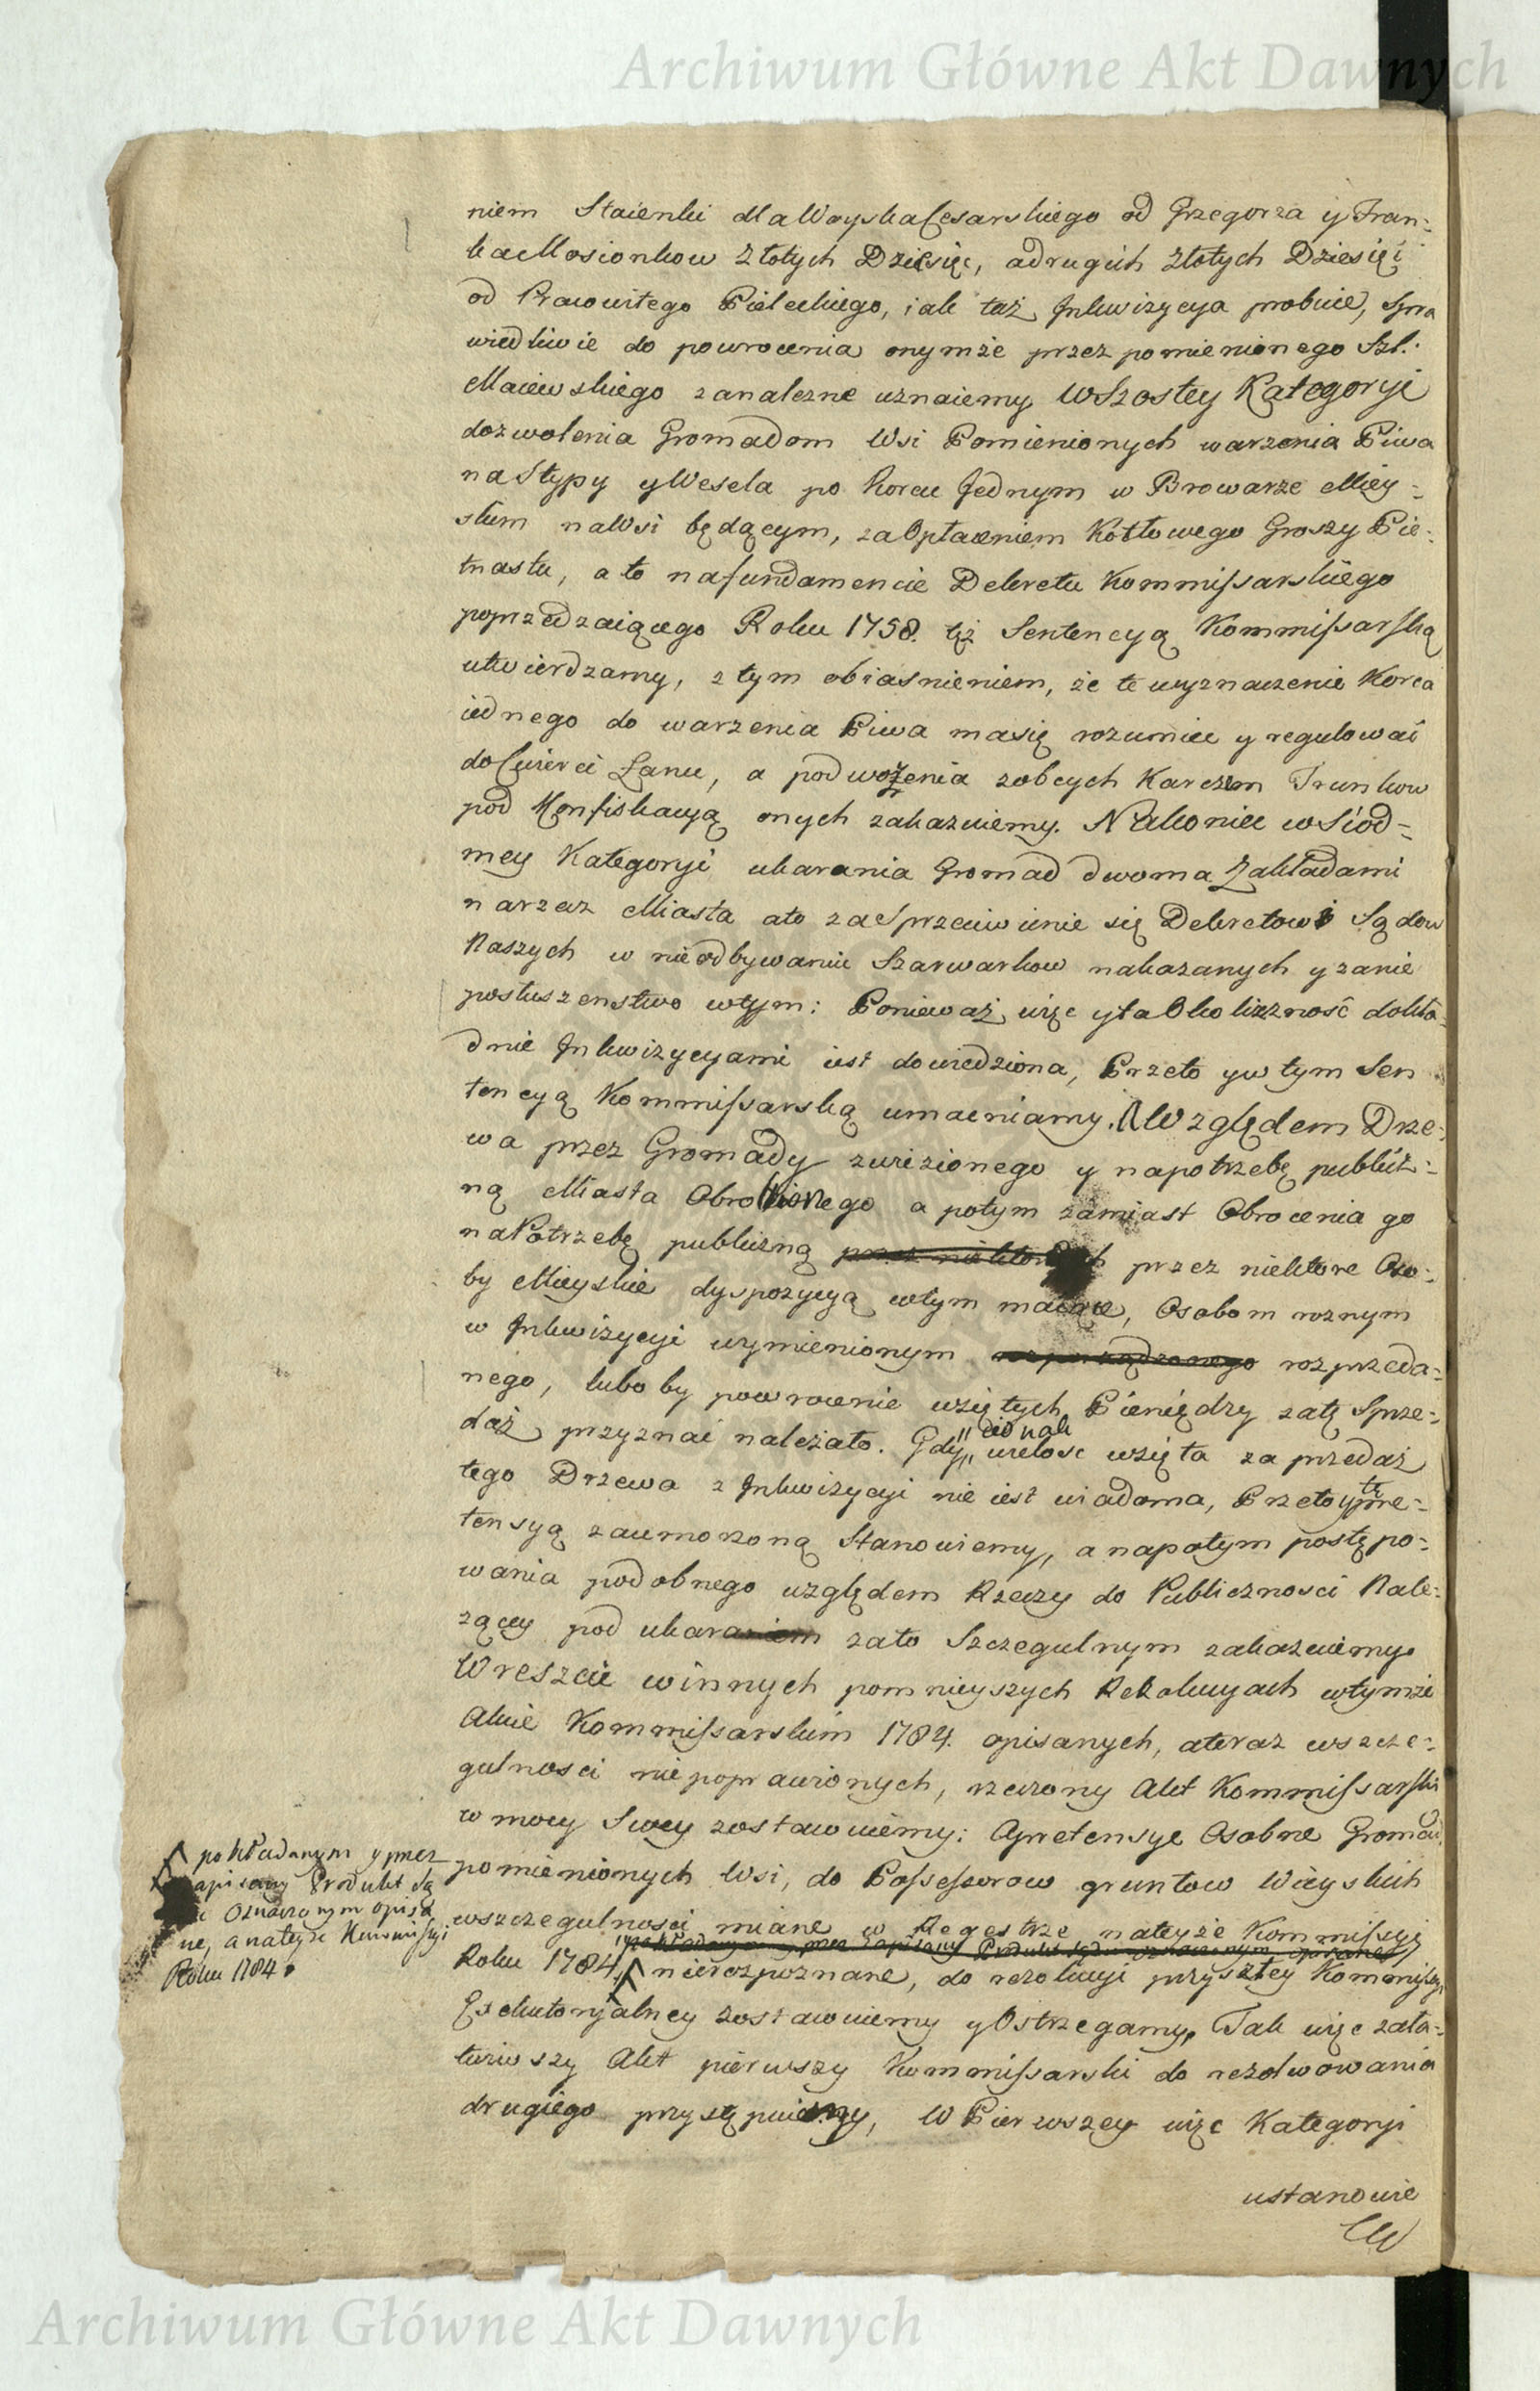 Archiwum Główne Akt Dawnych
niem Staienki dla Woyska Cesarskiego od Grzegorza y Fran-
ka Mosionkow Złotych Dziesięc, a drugich Złotych Dziesięc
od Pracowitego Pieleckiego, iak taż Inkwizycya probuie, Spra
wiedliwie do powrocenia onymże przez pomienionego Szl:
Maiewskiego zanalezne uznaiemy. W Szostey Kategoryi
dozwolenia Gromadom Wsi Pomienionych warzenia Piwa
na Stypy y Wesela po Korcu Jednym w Browarze Miey-
skim na Wsi będącym, za Opłaceniem Kotłowego Groszy Pie-
tnastu, a to na fundamencie Dekretu Kommissarskiego
poprzedzaiącego Roku 1758. tęż Sentencyą Kommissarską
utwierdzamy, z tym obiasnieniem, że te wyznaczenie Korca
iednego do warzenia Piwa ma się rozumiec y regulowac
do Cwierci Łanu, a podwożenia z obcych Karczm Trunkow
pod Konfiskacyą onych zakazuiemy. Nakoniec w Siod-
mey Kategoryi ukarania Gromad dwoma Zakładami
na rzecz Miasta a to za Sprzeciwienie się Dekretowi Sądow
Naszych w nieodbywaniu Szarwarkow nakazanych y za nie
posłuszenstwo w tym: Ponieważ więc y ta Okoliczność dokła-
dnie Inkwizycyami iest dowiedziona, Przeto y w tym Sen
tencyą Kommissarską umacniamy. Względem Drze-
wa przez Gromady zwiezionego y na potrzebę publicz-
ną Miasta Obroconego a potym zamiast Obrocenia go
na Potrzebę publiczną przez niektorych przez niektore Oso-
by Mieyskie dyspozycyą w tym maiące, Osobom roznym
w Inkwizycyi wymienionym rozprzeda-
nego, luboby powrocenie wziętych Pieniędzy za tę Sprze-
daż przyznac należało. Gdy iednak wielosc wzięta za przedaż
tego Drzewa z Inkwizycyi nie iest wiadoma, Przeto y tę pre-
tensyą za umorzoną Stanowiemy, a napotym postępo-
wania podobnego względem Rzeczy do Publicznosci Nale-
żącey pod ukaraniem za to Szczegulnym zakazuiemy.
Wreszcie w innych pomnieyszych Rezolucyach w tymże
Akcie Kommissarskim 1784. opisanych, a teraz w szcze-
gulnosci niepoprawionych, rzeczony Akt Kommissarski
w mocy Swey zostawuiemy: A pretensye Osobne Gromad
pomienionych Wsi, do Possessorow gruntow Wieyskich
w szczegulnosci miane w Regestrze na teyże Kommissyi
pokładanym y przez zapisany Produkt Są
du Oznaczonym opisa
ne, a na teyże Kommissyi
Roku 1784.
pokładanym y przez zapisany Produkt Sądu oznaczonym, opisane
Roku 1784. nierozpoznane, do rezolucyi przyszłey Kommissyi
Exekutoryalney zostawuiemy y Ostrzegamy. Tak więc zała-
twiwszy Akt pierwszy Kommissarski do rezolwowania
drugiego przystępuiemy, W Pierwszey więc Kategoryi
ustanowie
Archiwum Główne Akt Dawnych